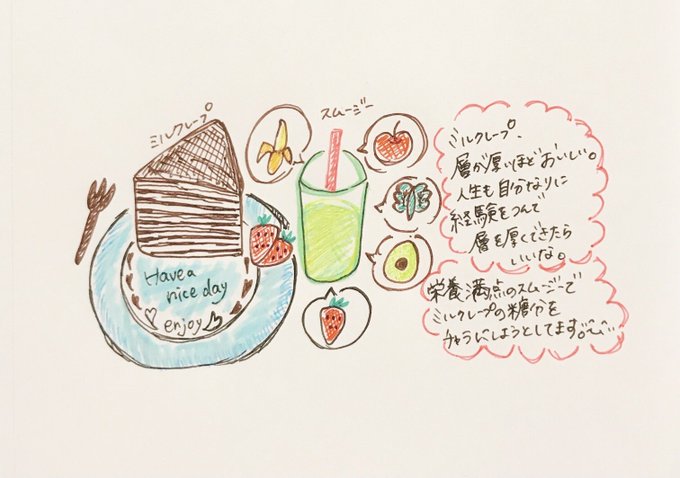 ミルクレープ
スムージー
Have a
nice day
enjoy
ミルクレープ、
層が厚いほどおいしい。
人生も自分なりに
経験をつんで
層を厚くできたら
いいな。
栄養満点のスムージーで
ミルクレープの糖分を
チャラにしようとしてます。